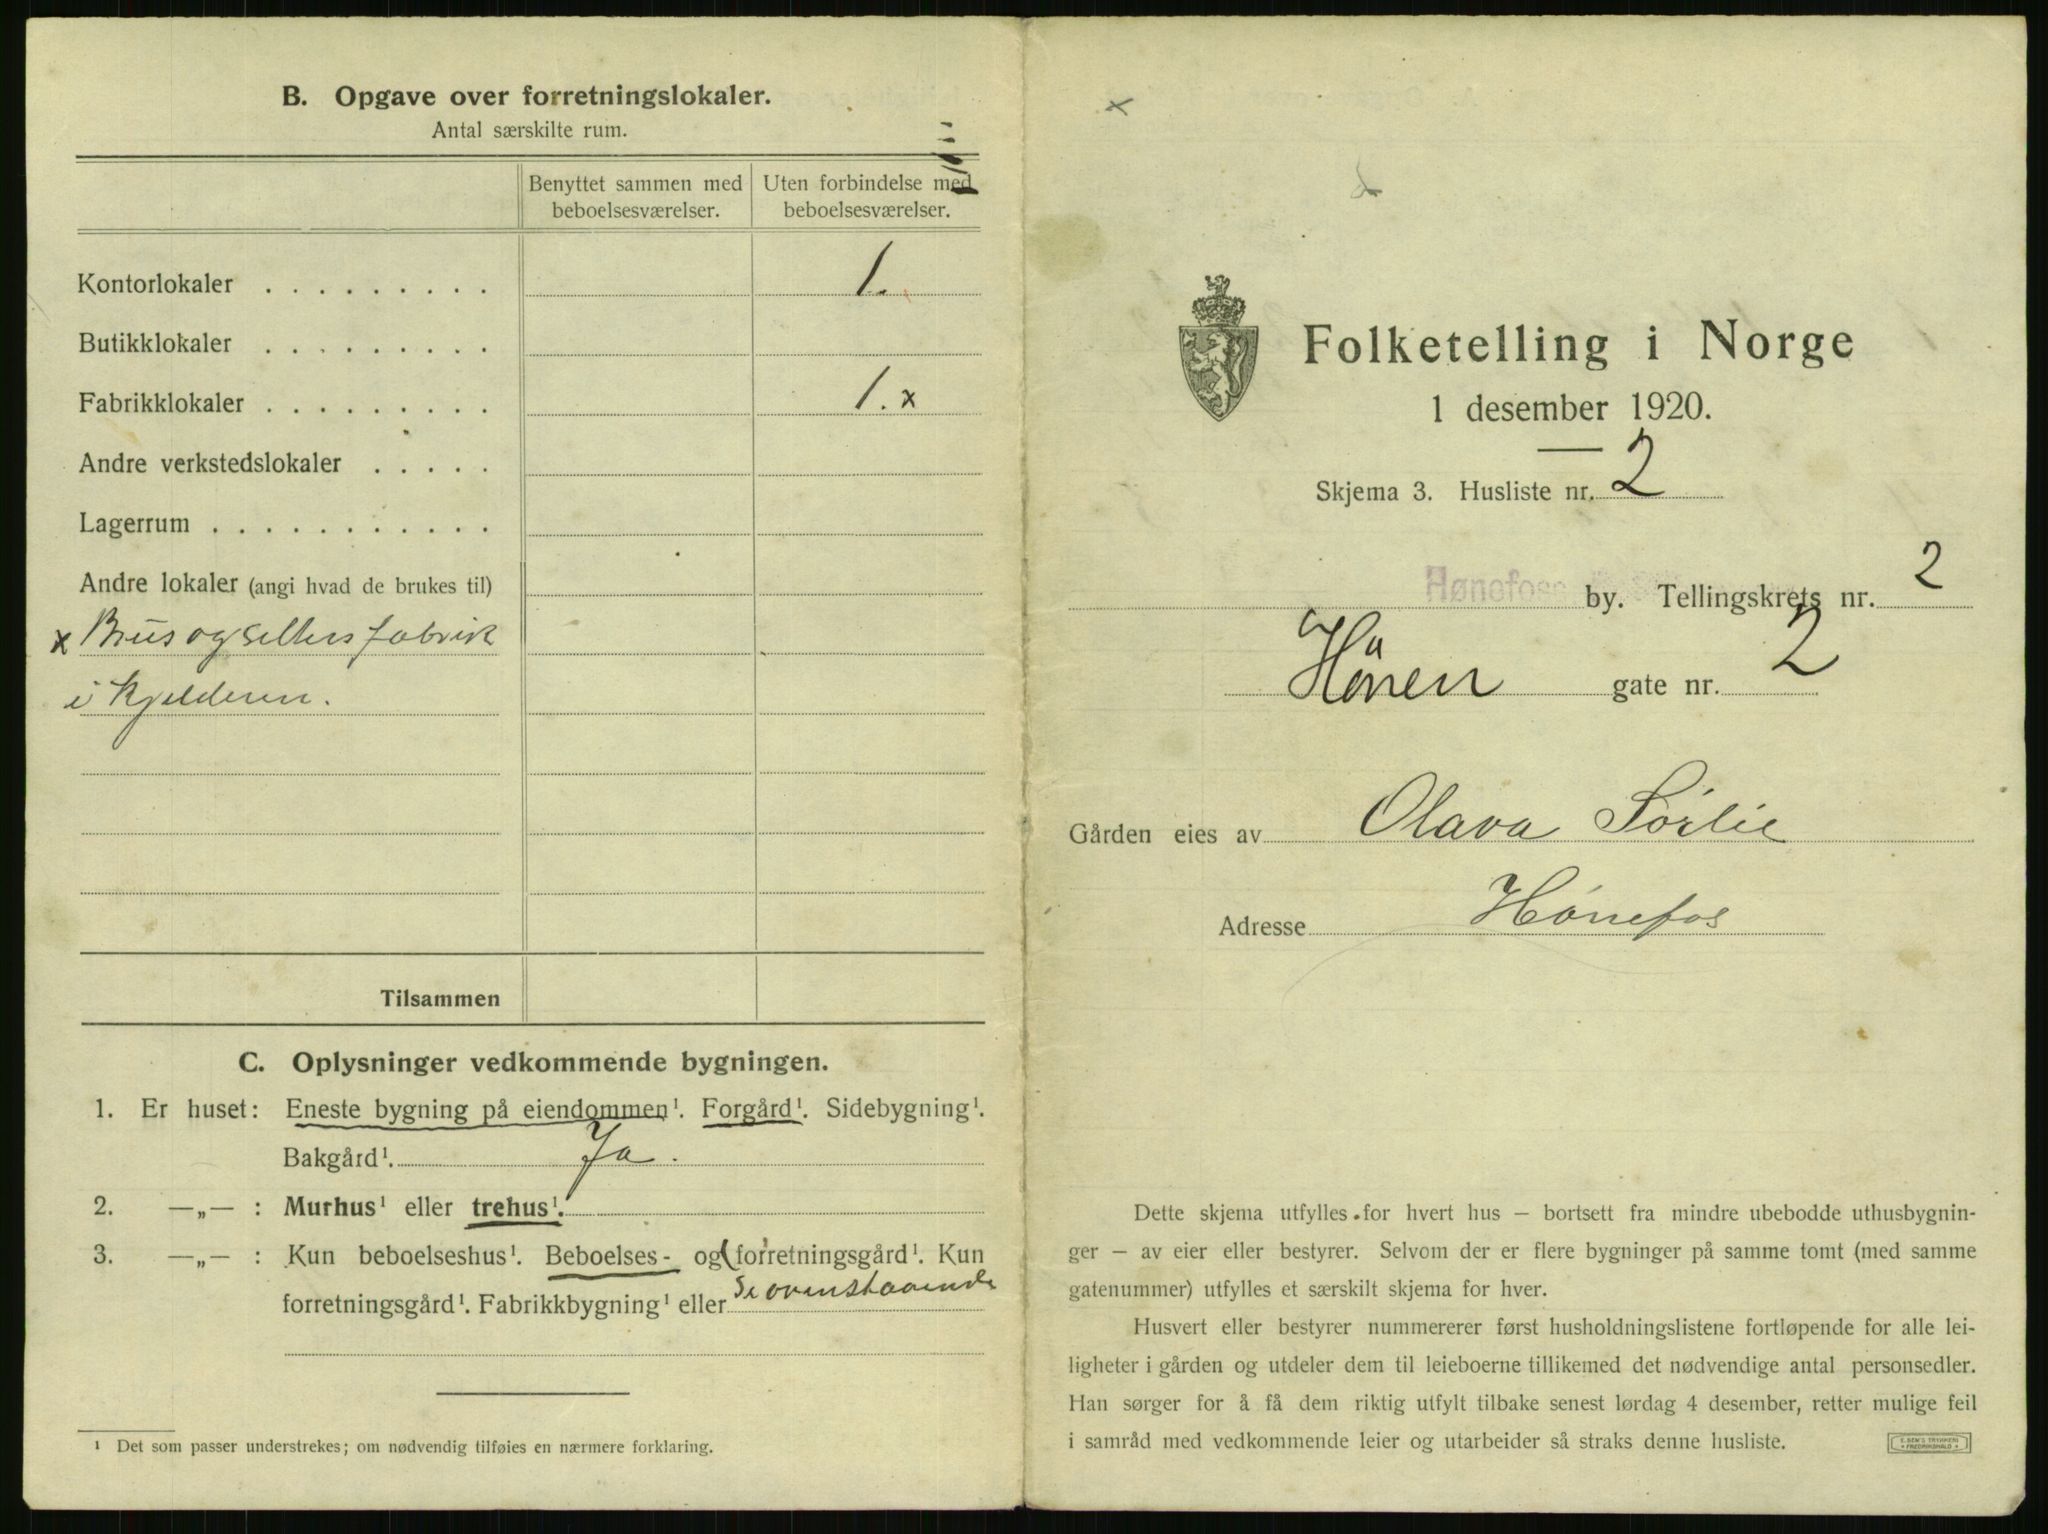 B. Opgave over forretningslokaler.
Antal særskilte rum.
Benyttet sammen med beboelsesværelser.
Uten forbindelse med beboelsesværelser.
Kontorlokaler . . . . . . . . . 1.
Butikklokaler . . . . . . . . .
Fabrikklokaler . . . . . . . . . 1. x
Andre verkstedslokaler . . . . .
Lagerrum . . . . . . . . . . .
Andre lokaler (angi hvad de brukes til)
x Brus og selters fabrik
i kjelderen.
Tilsammen
C. Oplysninger vedkommende bygningen.
1. Er huset: Eneste bygning på eiendommen¹. Forgård¹. Sidebygning¹.
Bakgård¹. Ja.
2. —„— : Murhus¹ eller trehus¹.
3. —„— : Kun beboelseshus¹. Beboelses- og (forretningsgård¹. Kun
forretningsgård¹. Fabrikkbygning¹ eller Se ovenstaaende
¹ Det som passer understrekes; om nødvendig tilføies en nærmere forklaring.
x
Folketelling i Norge
1 desember 1920.
Skjema 3. Husliste nr. 2
Hønefoss by. Tellingskrets nr. 2
Hönen gate nr. 2
Gården eies av Olava Sörlie
Adresse Hönefos
Dette skjema utfylles for hvert hus — bortsett fra mindre ubebodde uthusbygnin-
ger — av eier eller bestyrer. Selvom der er flere bygninger på samme tomt (med samme
gatenummer) utfylles et særskilt skjema for hver.
Husvert eller bestyrer nummererer først husholdningslistene fortløpende for alle lei-
ligheter i gården og utdeler dem til leieboerne tillikemed det nødvendige antal personsedler.
Han sørger for å få dem riktig utfylt tilbake senest lørdag 4 desember, retter mulige feil
i samråd med vedkommende leier og utarbeider så straks denne husliste.
E. SEM'S TRYKKERI
FREDRIKSHALD